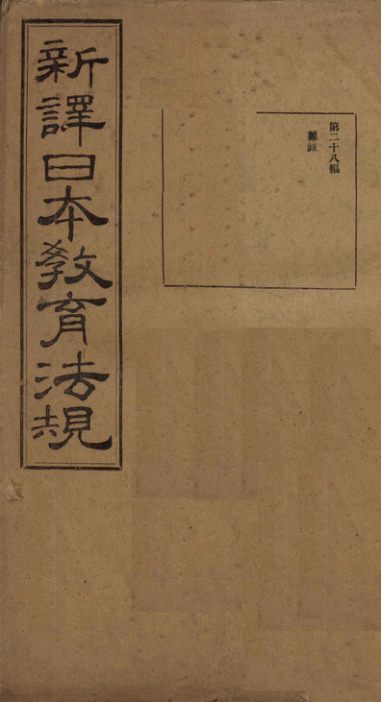 新譯日本教育法規
第二十八編
雜錄